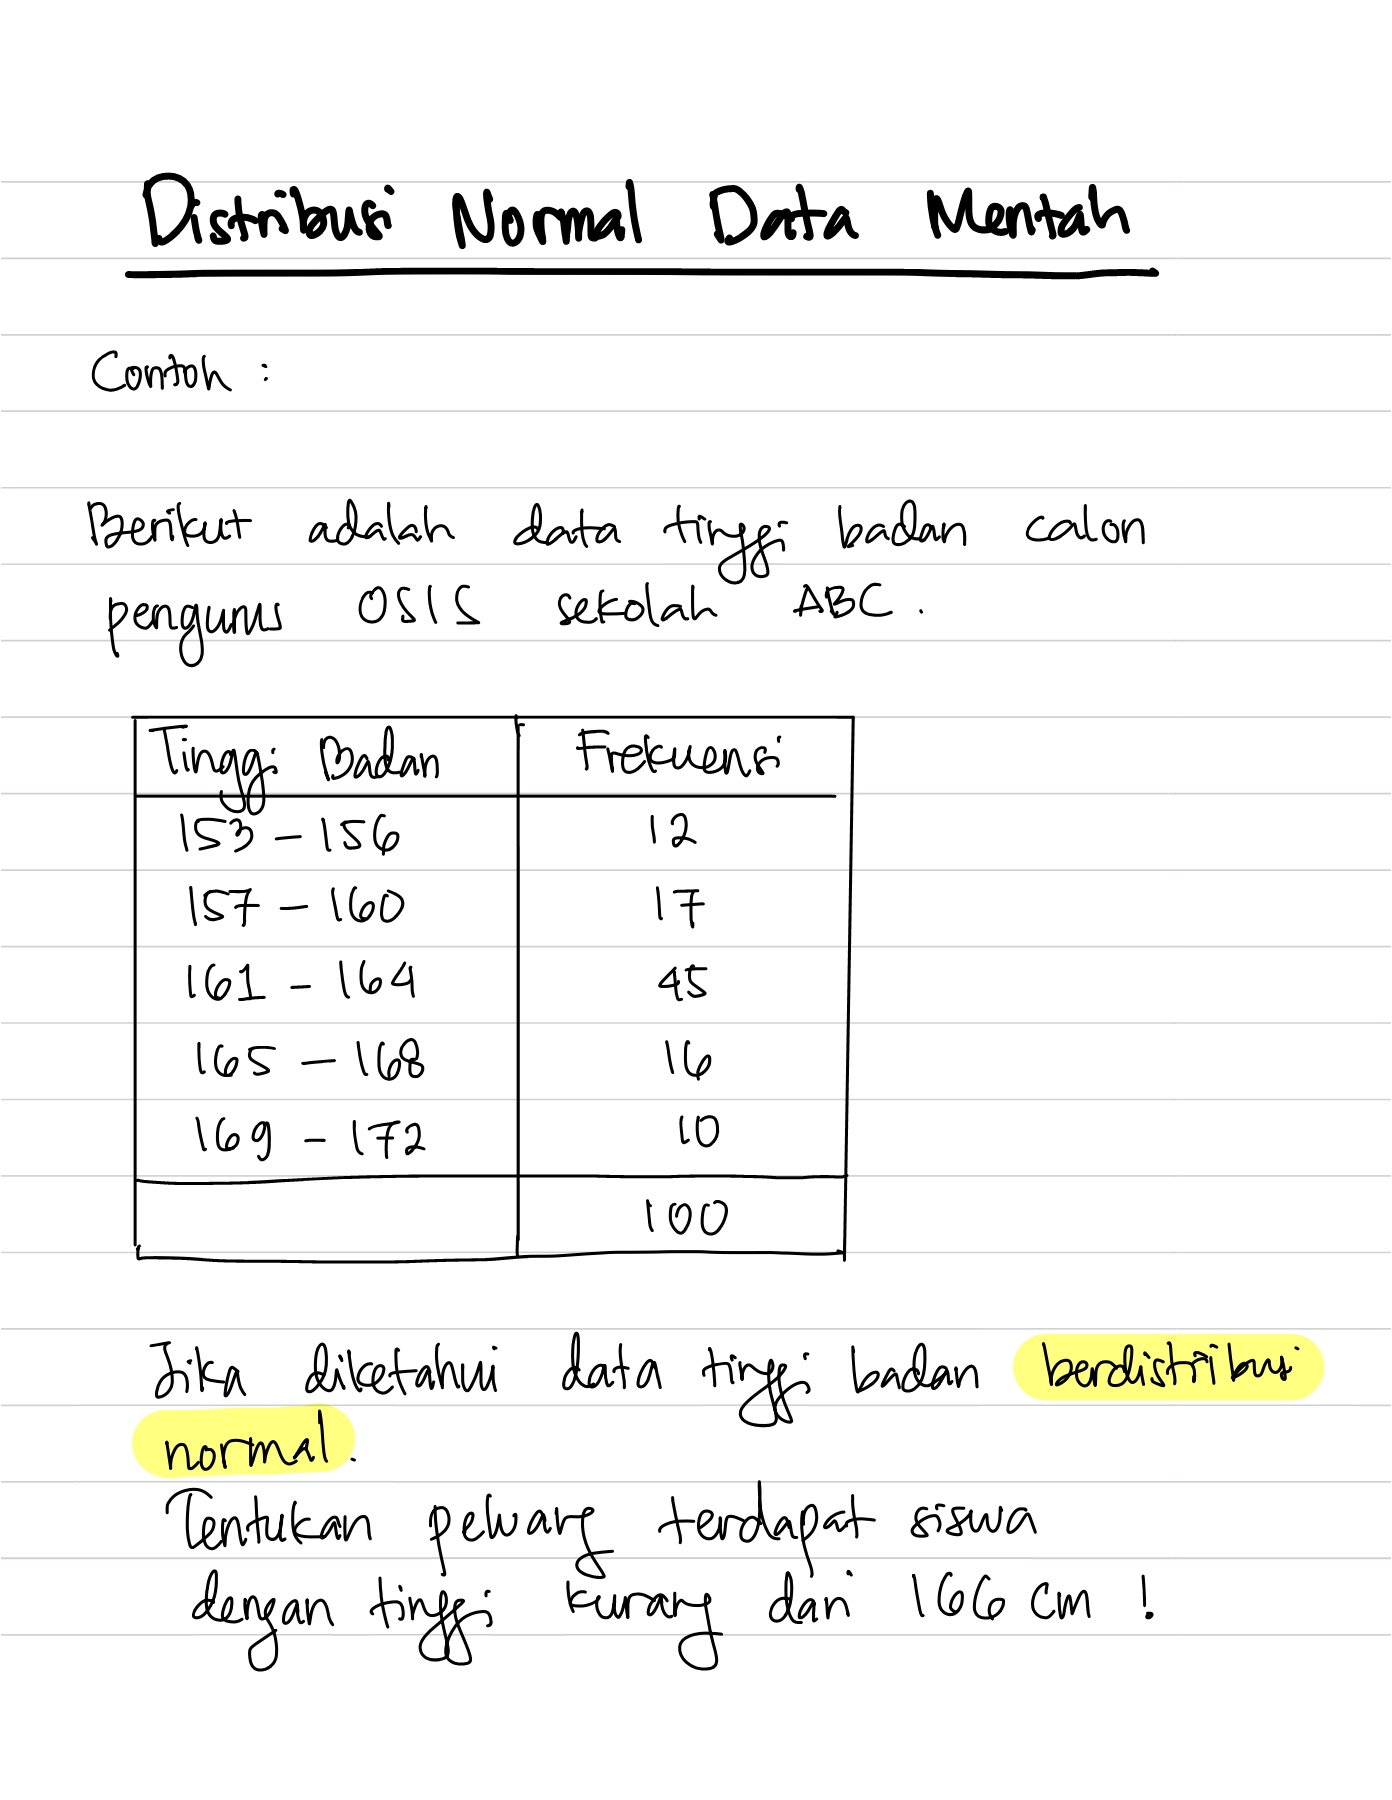 Distribusi Normal Data Mentah
Contoh :
Berikut adalah data tinggi badan calon
pengurus OSIS sekolah ABC.
Tinggi Badan Frekuensi
153 – 156 12
157 – 160 17
161 – 164 45
165 – 168 16
169 – 172 10
100
Jika diketahui data tinggi badan berdistribusi
normal.
Tentukan peluang terdapat siswa
dengan tinggi kurang dari 166 cm !